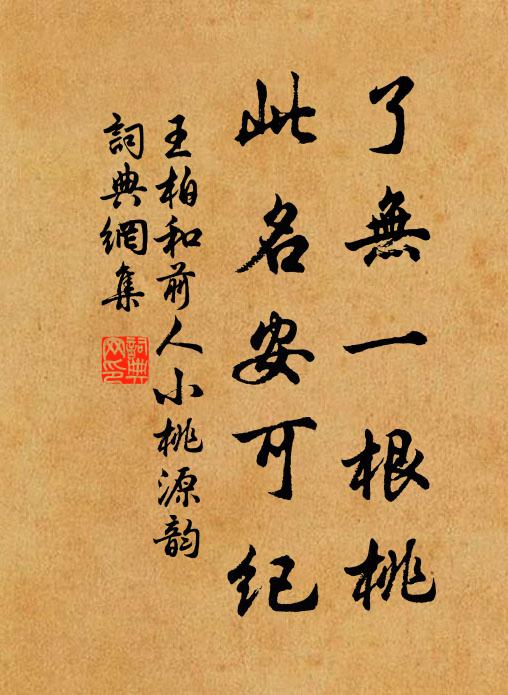 了無一根桃
此名安可紀
王柏和前人小桃源韵
詞典網集
詞典网印